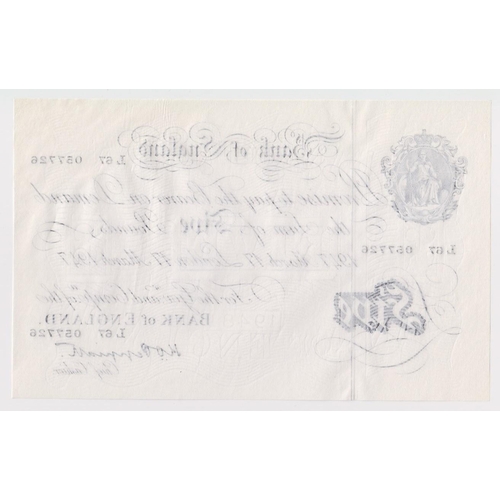 Bank of England
L67 057726
I Promise to pay the Bearer on Demand
the Sum of Five Pounds
L67 057726
1947 March 17 London 17 March 1947
For the Govr. and Compa. of the
BANK of ENGLAND.
L67 057726
Five
Chief Cashier